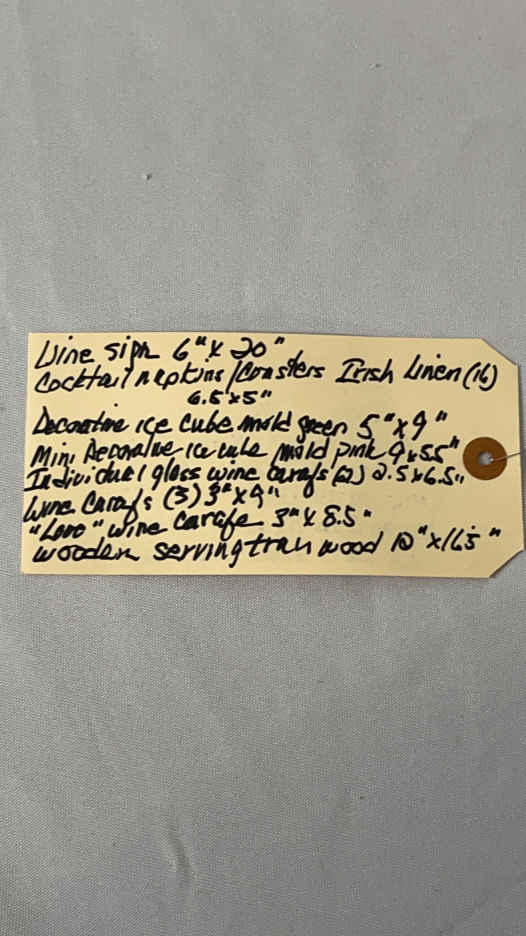 Wine sign 6" x 20"
Cocktail napkins/Coasters Irish Linen (16)
6.5 x 5"
Decorative ice cube mold green 5" x 9"
Mini Decorative ice cube mold pink 9 x 5.5"
Individual glass wine carafs (2) 2.5 x 6.5"
Wine Carafs (3) 3" x 9"
"Love" wine carafe 3" x 8.5"
wooden serving tray wood x 16.5"